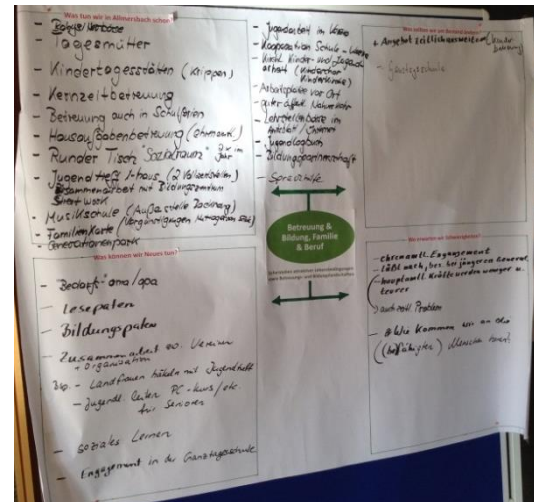 Was tun wir in Allmersbach schon?
- Tagesmütter
- Kindertagesstätten (Krippen)
- Kernzeitbetreuung
- Betreuung auch in Schulferien
- Hausaufgabenbetreuung (ehrenamtl.)
- Runder Tisch "Sozialraum" 2x im Jahr
- Jugendtreff J-haus (2 Vollzeitstellen)
Zusammenarbeit mit Bildungszentrum
Street Work
- Musikschule (Außenstelle Backnang)
- Familienkarte (Vergünstigungen
- Generationenpark
- Jugendarbeit im
- Kooperation Schule -
- Kirchl. Kinder- und Jugend-
arbeit (Kinderchor
Kinderkirche)
- Arbeitsplätze vor Ort
- guter öffentl. Nahverkehr
- Lehrstellenbörse im
Amtsblatt / Internet
- Jugendforum
- Bildungspartnerschaft
- Sprachhilfe
Betreuung &
Bildung, Familie
& Beruf
+ Angebot zeitlich erweitern
- Ganztagsschule
Was können wir Neues tun?
- "Bedarfs"oma/opa
- Lesepaten
- Bildungspaten
- Zusammenarbeit zw. Vereinen
+ Organisation
Bsp. - Landfrauen häkeln mit Jugendtreff
- Jugendl. leiten PC-Kurs/etc.
für Senioren
- soziales Lernen
- Engagement in der Ganztagesschule
- ehrenamtl. Engagement
läßt nach, bes. bei jüngeren Generat.
- hauptamtl. Kräfte werden weniger u.
teurer
auch zeitl. Problem
- Wie kommen wir an die
((befähigten) Menschen